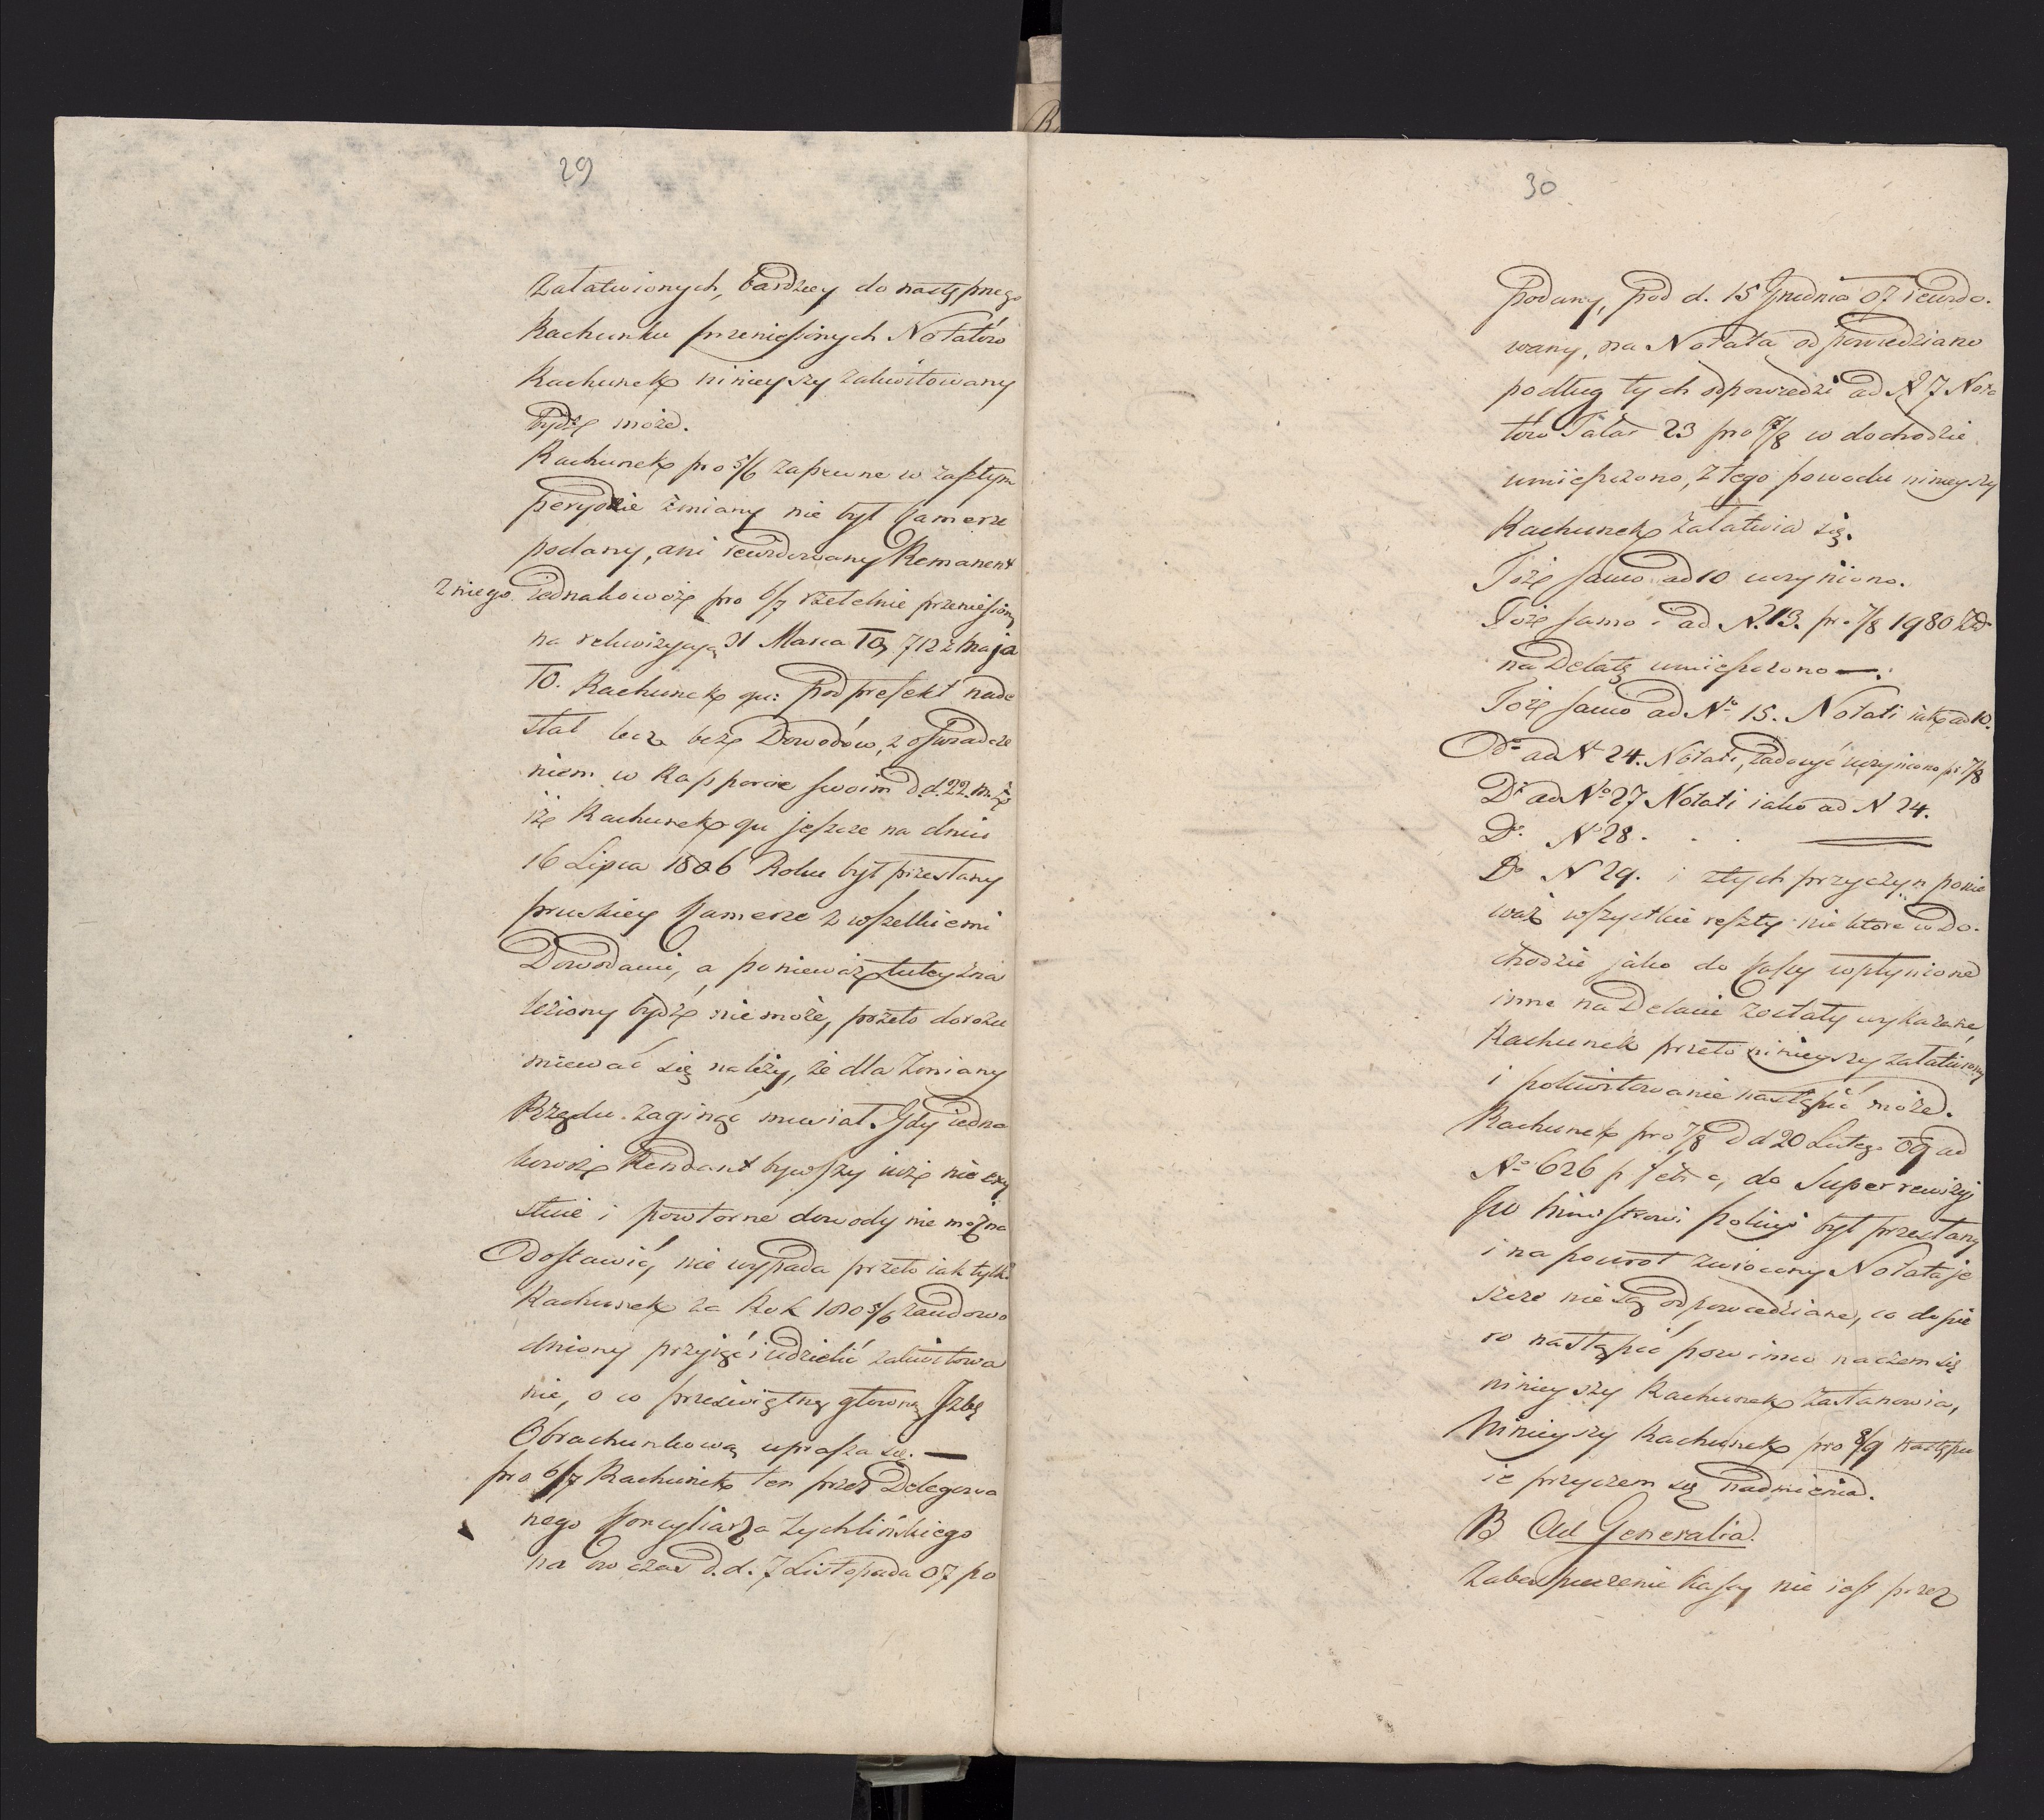 29
załatwionych, bardziey do następnego
Rachunku przeniesionych Notatów
Rachunek ninieyszy zakwitowany
bydź może.
Rachunek pro 5/6 zapewne w zaszłym
peryodzie zmiany nie był Kamerze
podany, ani rewidowany Remanent
z niego iednakowoż pro 6/7 rzetelnie przeniesiony
na rekwizycyą 31 Marca 10, 7 12 Maja
10. Rachunek qu: Podprefekt nade
słał lecz bez Dowodów, z oświadcze
niem w Rapporcie swoim d.d. 22. m.
iż Rachunek qu jeszcze na dniu
16 Lipca 1806 Roku był przesłany
pruskiey Kamerze z wszelkiemi
Dowodami, a ponieważ tutey zna
leziony bydź nie może, przeto dorozu
miewać się należy, że dla zmiany
Rządu zaginąć musiał. Gdy iedna
kowoż Rendant bywszy iuż nie exy
stuie i powtorne dowody nie można
dostawić, nie wypada przeto iak tylko
Rachunek za Rok 180 5/6 zaudowo
dniony przyiąć i udzielić zakwitowa
nie, o co prześwietną głowną Jzbę
Obrachunkową uprasza się. —
pro 6/7 Rachunek ten przez Delegowa
nego Konsyliarza Zychlińskiego
na ow czas d.d. 7 Listopada 07 po
30
podany, pod d. 15 Grudnia 07 rewido.
wany, na Notata odpowiedziano
podług tych odpowiedzi ad N 7 Nota
tów Talar 23 pro 7/8 w dochodzie
umieszczono, z tego powodu ninieyszy
Rachunek załatwia się.
Toż samo ad 10 uczyniono.
Toż samo i ad N. 13. pro 7/8 1980
na Defektę umieszczono —.
Toż samo ad No 15. Notati iak ad 10.
Do ad N 24. Notati, zadosyć uczyniono pr 7/8
Do ad No 27 Notati iako ad N 24.
Do. N 28. . .
Do N 29. i z tych przyczyn ponie
waż wszystkie reszty niektore w Do.
chodzie jako do Kassy wpłynione
inne na Defekcie zostały wykazane,
Rachunek przeto ninieyszy załatwiony
i pokwitowanie nastąpić może.
Rachunek pro 7/8 d d 20 Lutego 09 ad
No 626 do Superrewizyi
JW Ministrowi Policyi był przesłany
i na powrot zwrocony Notata je
szcze nie są odpowiedziane, co dopie
ro nastąpić powinno na czem się
ninieyszy Rachunek zastanowia,
Ninieyszy Rachunek pro 8/9 następu
ie przyczem się nadmienia.
B Ad Generalia.
Zabespieczenie Kassy nie iest przez